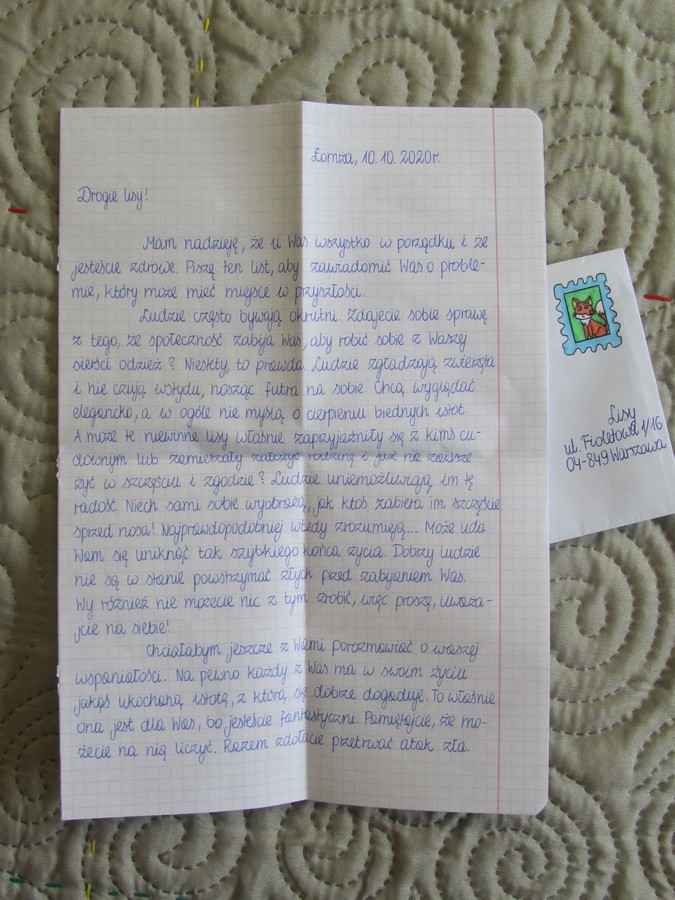 Łomża, 10.10.2020r.
Drogie lisy!
Mam nadzieję, że u Was wszystko w porządku i że
jesteście zdrowe. Piszę ten list, aby zawiadomić Was o proble-
mie, który może mieć miejsce w przyszłości.
Ludzie często bywają okrutni. Zdajecie sobie sprawę
z tego, że społeczność zabija Was, aby robić sobie z Waszej
sierści odzież? Niestety, to prawda. Ludzie zgładzają zwierzęta
i nie czują wstydu, nosząc futra na sobie. Chcą wyglądać
elegancko, a w ogóle nie myślą o cierpieniu biednych istot.
A może te niewinne lisy właśnie zaprzyjaźniły się z kimś cu-
downym lub zamierzały założyć rodzinę i już na zawsze
żyć w szczęściu i zgodzie? Ludzie uniemożliwiają im tę
radość. Niech sami sobie wyobrażą, jak ktoś zabiera im szczęście
sprzed nosa! Najprawdopodobniej wtedy zrozumieją... Może uda
Wam się uniknąć tak szybkiego końca życia. Dobrzy ludzie
nie są w stanie powstrzymać złych przed zabijaniem Was.
Wy również nie możecie nic z tym zrobić, więc proszę, uważa-
jcie na siebie!
Chciałabym jeszcze z Wami porozmawiać o waszej
wspaniałości. Na pewno każdy z Was ma w swoim życiu
jakąś ukochaną istotę, z którą się dobrze dogaduje. To właśnie
ona jest dla Was, bo jesteście fantastyczni. Pamiętajcie, że mo-
żecie na nią liczyć. Razem zdołacie przetrwać atak zła.
Lisy
ul. Fioletowa 1/16
04-849 Warszawa